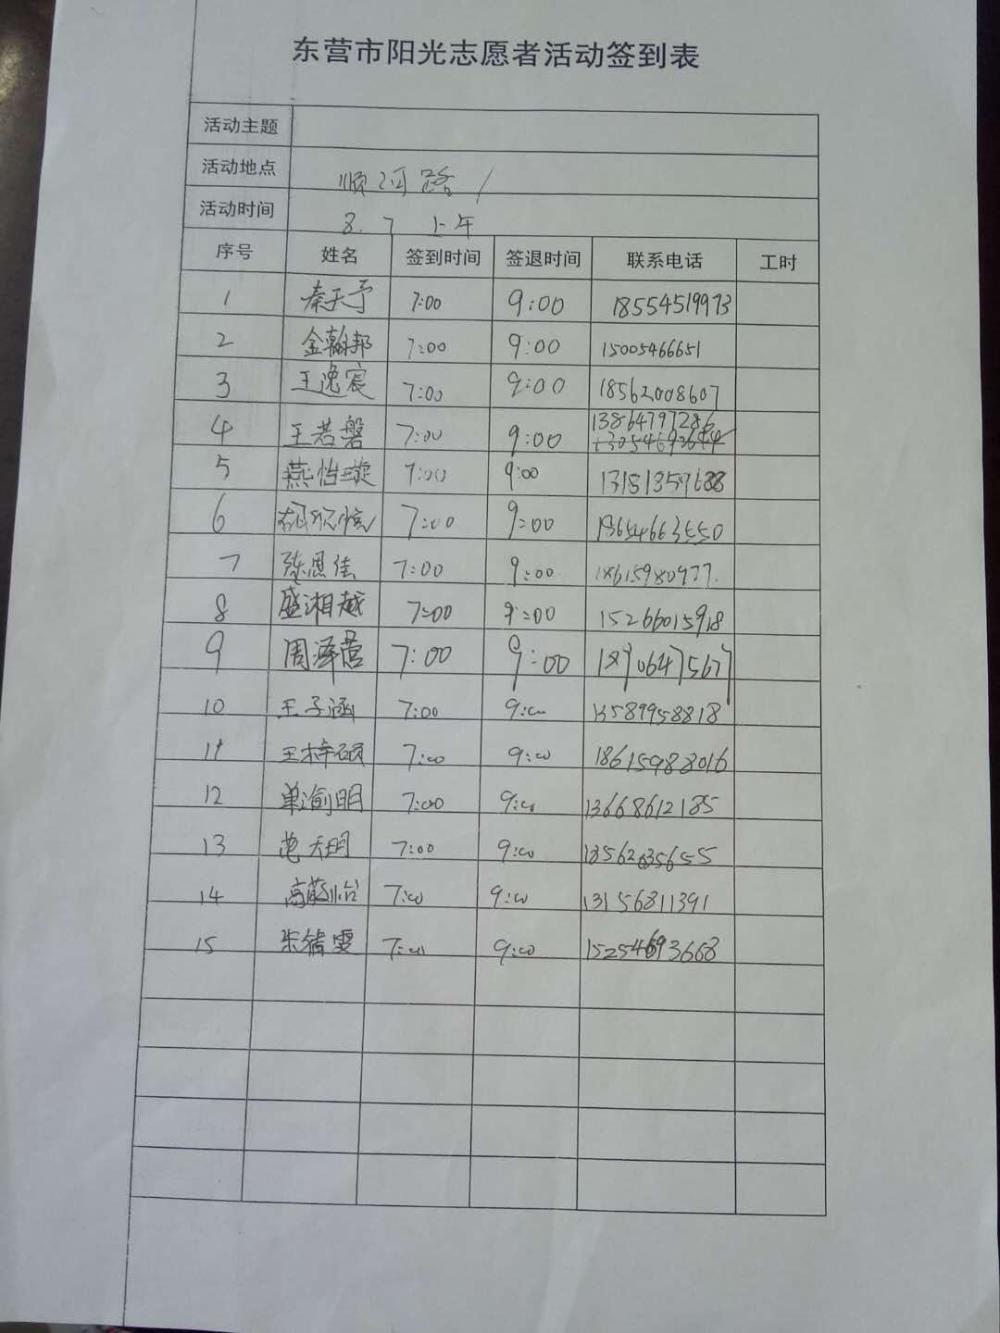 东营市阳光志愿者活动签到表
活动主题
活动地点 顺河路
活动时间 8.7 上午
序号 姓名 签到时间 签退时间 联系电话 工时
1 秦天予 7:00 9:00 18554519973
2 金翰邦 7:00 9:00 15005466651
3 王逸宸 7:00 9:00 18562008607
4 王若磐 7:00 9:00 13864797286
5 燕怡璇 7:00 9:00
6 7:00 9:00 13654663550
7 陈思佳 7:00 9:00 18615980977
8 盛湘越 7:00 9:00 15266015918
9 周泽蓉 7:00 9:00 18706475677
10 王子涵 7:00 9:00 13589958818
11 王梓硕 7:00 9:00 18615988016
12 单渝明 7:00 9:00 13668612185
13 7:00 9:00
14 7:00 9:00 13156811391
15 朱绪雯 7:00 9:00 15254693668